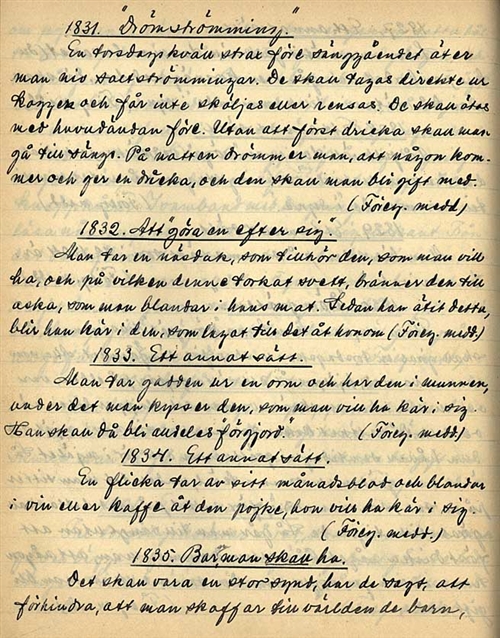 1831. "Drömströmming."
En torsdagskväll strax före sänggåendet äter
man nio saltströmmingar. De skall tagas direkte ur
koppen och får inte sköljas eller rensas. De skall ätas
med huvudändan före. Utan att först dricka skall man
gå till sängs. På natten drömmer man, att någon kom-
mer och ger en dricka, och den skall man bli gift med.
(Föreg. medd.)
1832. Att "göra en efter sig".
Man tar en näsduk, som tillhör den, som man vill
ha, och på vilken denne torkat svett, bränner den till
aska, som man blandar i hans mat. Sedan han ätit detta,
blir han kär i den, som lagat till det åt honom (Föreg. medd.)
1833. Ett annat sätt.
Man tar gadden ur en orm och har den i munnen,
under det man kysser den, som man vill ha kär i sig.
Han skall då bli alldeles förgjord." (Föreg. medd.)
1834. Ett annat sätt.
En flicka tar av sitt månadsblod och blandar
i vin eller kaffe åt den pojke, hon vill ha kär i sig.
(Föreg. medd.)
1835. Barn man skall ha.
Det skall vara en stor synd, har de sagt, att
förhindra, att man skaffar till världen de barn,